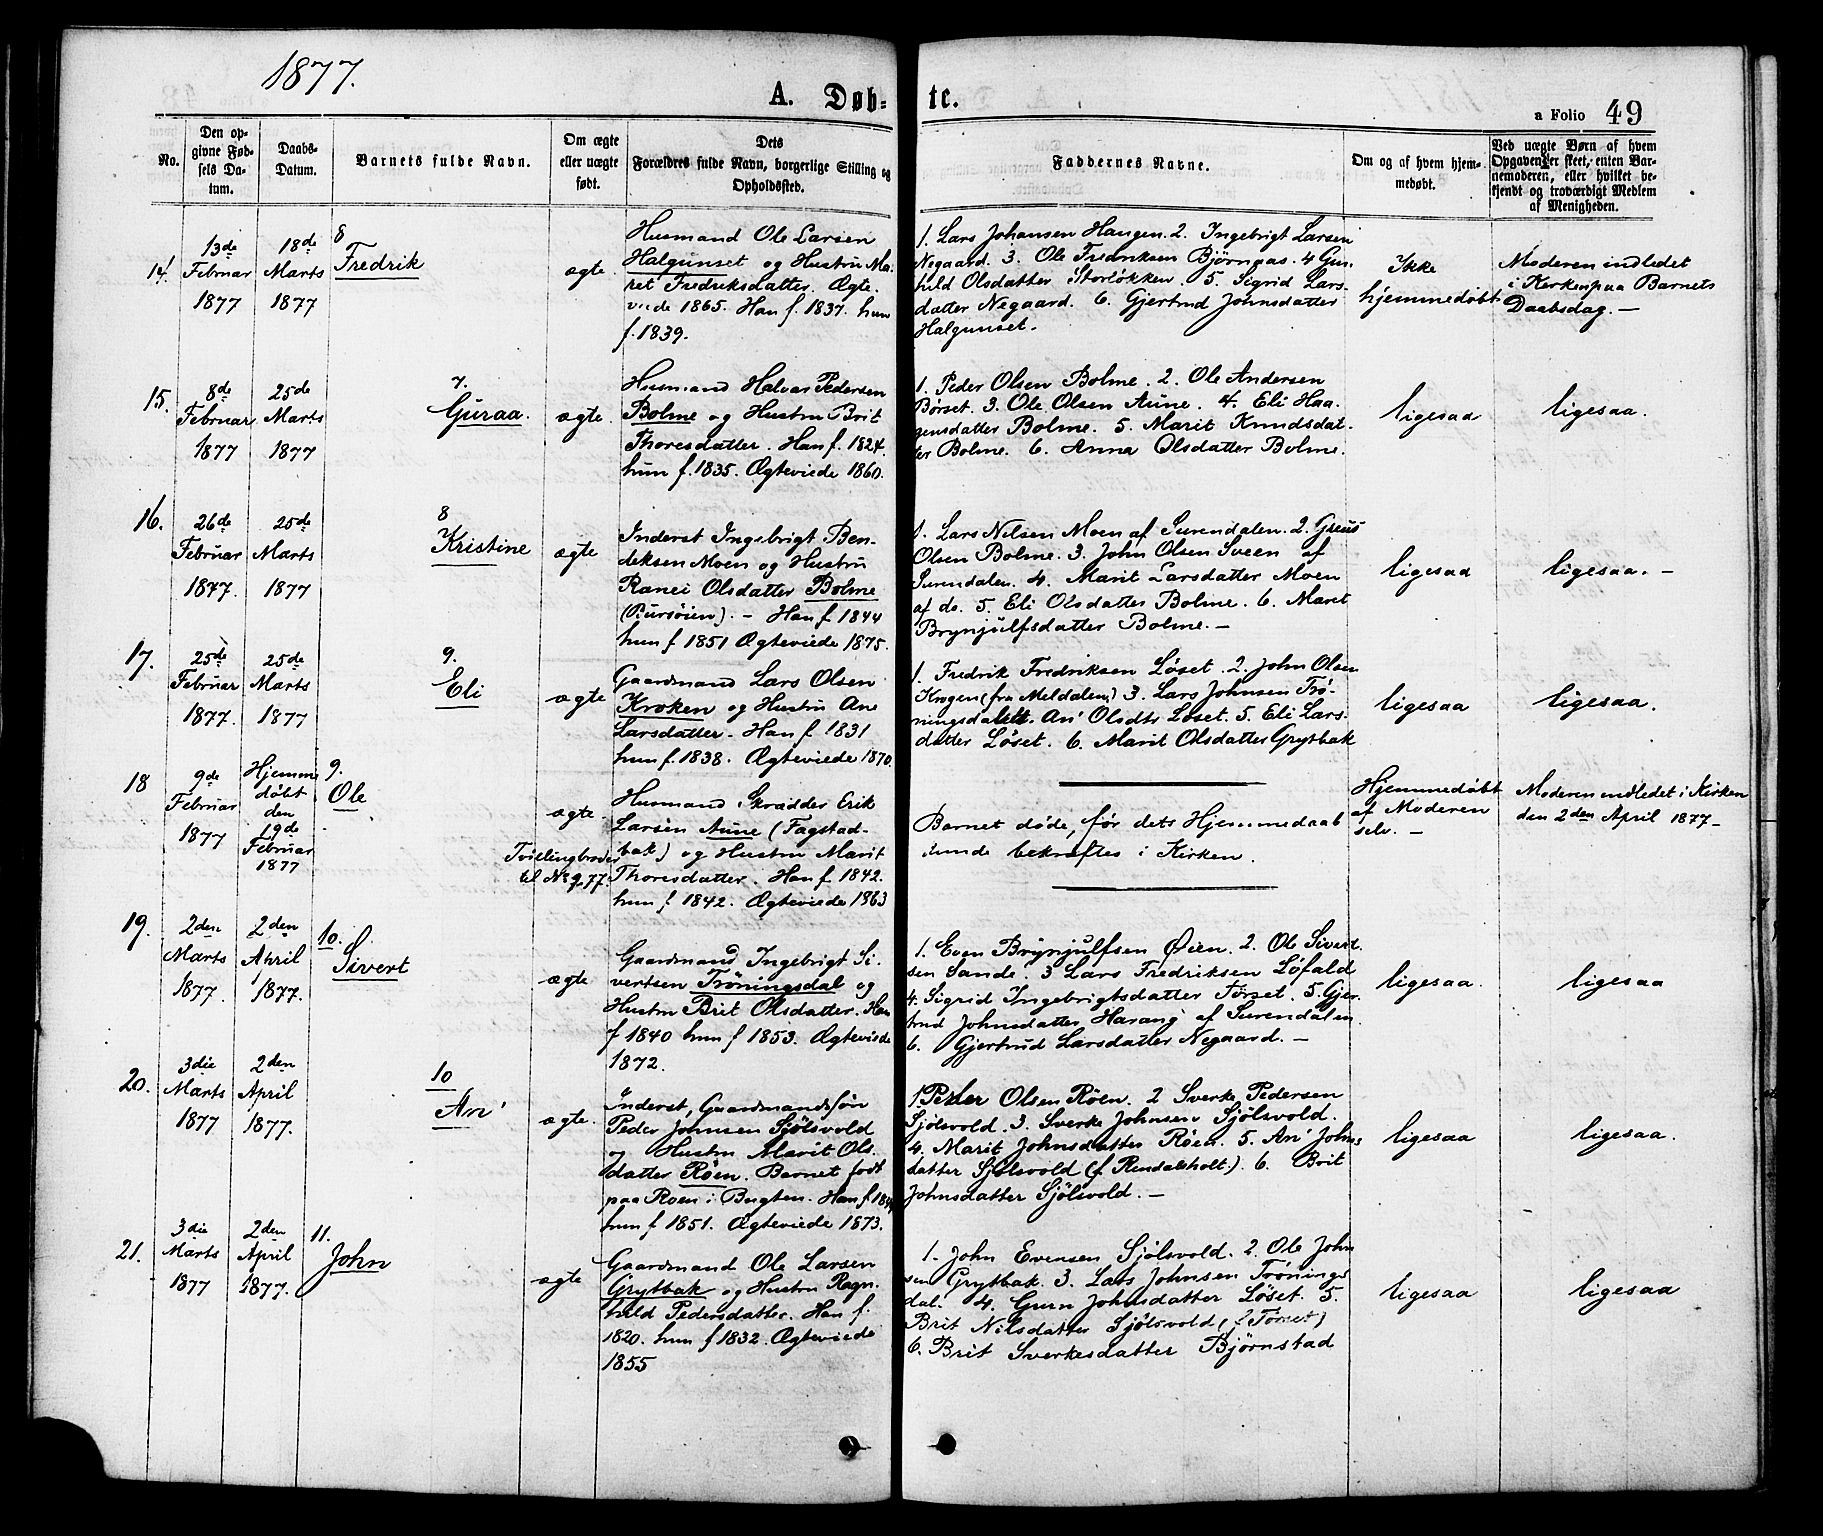 1877.
A. Døb-
te.
a Folio 49
No.
Den op-
givne Fød-
sels Da-
tum.
Daabs-
Datum.
Barnets fulde Navn.
Om ægte
eller uægte
født.
Dets
Forældres fulde Navn, borgerlige Stilling og
Opholdssted.
Faddernes Navne.
Om og af hvem hjem-
medøbt.
Ved uægte Børn af hvem
Opgaven er skeet, enten Bar-
nemoderen, eller hvilket be-
kjendt og troværdigt Medlem
af Menigheden.
14.
13de
Februar
1877
18de
Marts
1877
8
Fredrik
ægte
Husmand Ole Larsen
Halgunset og Hustru Ma-
ret Fredriksdatter. Ægte-
viede 1865. Han f. 1837. hun
f. 1839.
1. Lars Johansen Haugen. 2. Ingebrigt Larsen
Negaard. 3. Ole Fredriksen Bjørnaas. 4 Gun-
hild Olsdatter Storløkken. 5. Sigrid Lars-
datter Negaard. 6. Gjertrud Johnsdatter
Halgunset.
Ikke
hjemmedøbt
Moderen indledet
i Kirken paa Barnets
Daabsdag. —
15.
8de
Februar
1877
25de
Marts
1877
7.
Guraa.
ægte
Husmand Halvar Pedersen
Bolme og Hustru Brit
Thoresdatter. Han f. 1824.
hun f. 1835. Ægteviede 1860.
1. Peder Olsen Bolme. 2. Ole Andersen
Børset. 3. Ole Olsen Aune. 4. Eli Haa-
gensdatter Bolme. 5. Marit Knudsdat-
ter Bolme. 6. Anna Olsdatter Bolme.
ligesaa
ligesaa.
16.
26de
Februar
1877.
25de
Marts
1877
8
Kristine
ægte
Inderst Ingebrigt Ben-
diksen Moen og Hustru
Ranei Olsdatter Bolme
(Pursøien). — Han f. 1844
hun f. 1851 Ægteviede 1875.
1. Lars Nilsen Moen af Surendalen. 2.
Olsen Bolme. 3. John Olsen Sveen af
Surendalen. 4. Marit Larsdatter Moen
af do. 5. Eli Olsdatter Bolme. 6. Maret
Brynjulfsdatter Bolme. —
ligesaa
ligesaa. —
17.
25de
Februar
1877.
25de
Marts
1877
9.
Eli
ægte
Gaardmand Lars Olsen
Kroken og Hustru Ane
Larsdatter. Han f. 1831
hun f. 1838. Ægteviede 1870.
1. Fredrik Fredriksen Løset. 2. John Olsen
Krogen (fra Meldalen) 3. Lars Johnsen Trø-
ningsdal. An' Olsdtr Løset. 5. Eli Lars-
datter Løset. 6. Marit Olsdatter Grytbak
ligesaa
ligesaa.
18
9de
Februar
1877
Hjemme
døbt
den
19de
Februar
1877
9.
Ole
ægte.
Tvillingbroder
til No 9. 77.
Husmand, Skrædder Erik
Larsen Aune (Fagstad-
bak) og Hustru Marit
Thoresdatter. Han f. 1842.
hun f. 1842. Ægteviede 1863
Barnet døde, før dets Hjemmedaab
kunde bekræftes i Kirken.
Hjemmedøbt
af Moderen
selv. —
Moderen indledet i Kirken
den 2den April 1877 —
19.
2den
Marts
1877.
2den
April
1877.
10.
Sivert
ægte
Gaardmand Ingebrigt Si-
vertsen Trøningsdal og
Hustru Brit Olsdatter. Han
f 1840 hun f 1853. Ægteviede
1872.
1. Even Brynjulfsen Øien. 2. Ole Sivert-
sen Sande. 3 Lars Fredriksen Løfald
4. Sigrid Ingebrigtsdatter Tørset. 5. Gjer-
trud Johnsdatter Harang af Surendalen.
6. Gjertrud Larsdatter Negaard. —
ligesaa.
ligesaa
20.
3die
Marts
1877
2den
April
1877.
10
An'
ægte.
Inderst, Gaardmandssøn
Peder Johnsen Sjølsvold
og Hustru Marit Ols-
datter Røen. Barnet født
paa Røen i Bugten. Han f 184
hun f 1851. Ægteviede 1873.
1. Peder Olsen Røen. 2 Sverke Pedersen
Sjølsvold. 3. Sverke Johnsen Sjølsvold.
4. Marit Johnsdatter Røen. 5. An' Johns-
datter Sjølsvold (f Rendalsholt.). 6. Brit
Johnsdatter Sjølsvold. —
ligesaa
ligesaa.
21.
3die
Marts
1877
2den
April
1877.
11.
John
ægte
Gaardmand Ole Larsen
Grytbak og Hustru Ragn-
hild Pedersdatter. Han f.
1820. hun f 1832. Ægteviede
1855
1. John Evensen Sjølsvold. 2. Ole John-
sen Grytbak. 3. Lars Johnsen Trønings-
dal. 4. Guru Johnsdatter Løset. 5.
Brit Nilsdatter Sjølsvold (f Tørset)
6. Brit Sverkesdatter Bjørnstad
ligesaa
ligesaa